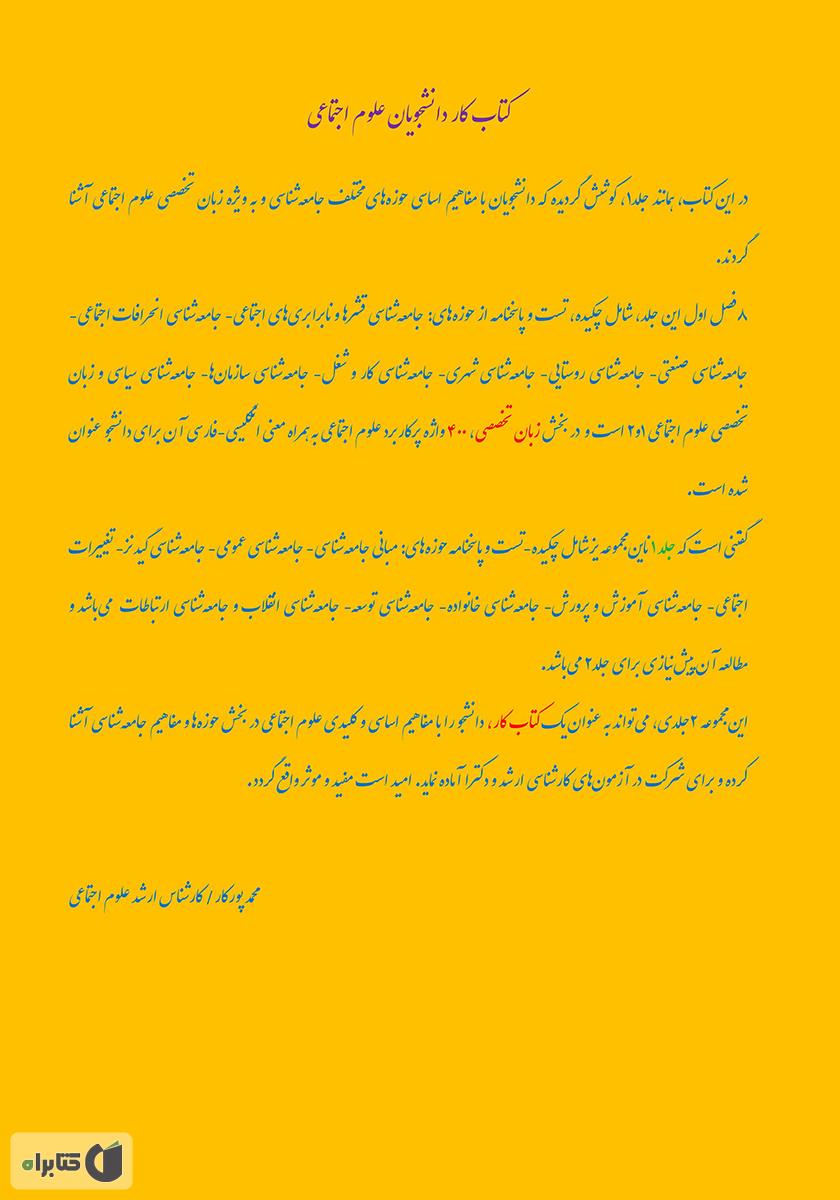 کتاب کار دانشجویان علوم اجتماعی
در این کتاب، همانند جلد۱، کوشش گردیده که دانشجویان با مفاهیم اساسی حوزه‌های مختلف جامعه‌شناسی و به ویژه زبان تخصصی علوم اجتماعی آشنا
گردند.
۸ فصل اول این جلد، شامل چکیده، تست و پاسخنامه از حوزه‌های: جامعه‌شناسی قشرها و نابرابری‌های اجتماعی- جامعه‌شناسی انحرافات اجتماعی-
جامعه‌شناسی صنعتی- جامعه‌شناسی روستایی- جامعه‌شناسی شهری- جامعه‌شناسی کار و شغل- جامعه‌شناسی سازمان‌ها- جامعه‌شناسی سیاسی و زبان
تخصصی علوم اجتماعی ۱و۲ است و در بخش زبان تخصصی، ۴۰۰ واژه پرکاربرد علوم اجتماعی به همراه معنی انگلیسی-فارسی آن برای دانشجو عنوان
شده است.
گفتنی است که جلد ۱ ناین مجموعه یز شامل چکیده-تست و پاسخنامه حوزه‌های: مبانی جامعه‌شناسی- جامعه‌شناسی عمومی- جامعه‌شناسی گیدنز- تغییرات
اجتماعی- جامعه‌شناسی آموزش و پرورش- جامعه‌شناسی خانواده- جامعه‌شناسی توسعه- جامعه‌شناسی انقلاب و جامعه‌شناسی ارتباطات می‌باشد و
مطالعه آن پیش‌نیازی برای جلد۲ می‌باشد.
این مجموعه ۲جلدی، می‌تواند به عنوان یک کتاب کار، دانشجو را با مفاهیم اساسی و کلیدی علوم اجتماعی در بخش حوزه‌ها و مفاهیم جامعه‌شناسی آشنا
کرده و برای شرکت در آزمون‌های کارشناسی ارشد و دکترا آماده نماید. امید است مفید و موثر واقع گردد.
محمد پورکار / کارشناس ارشد علوم اجتماعی
کتابراه